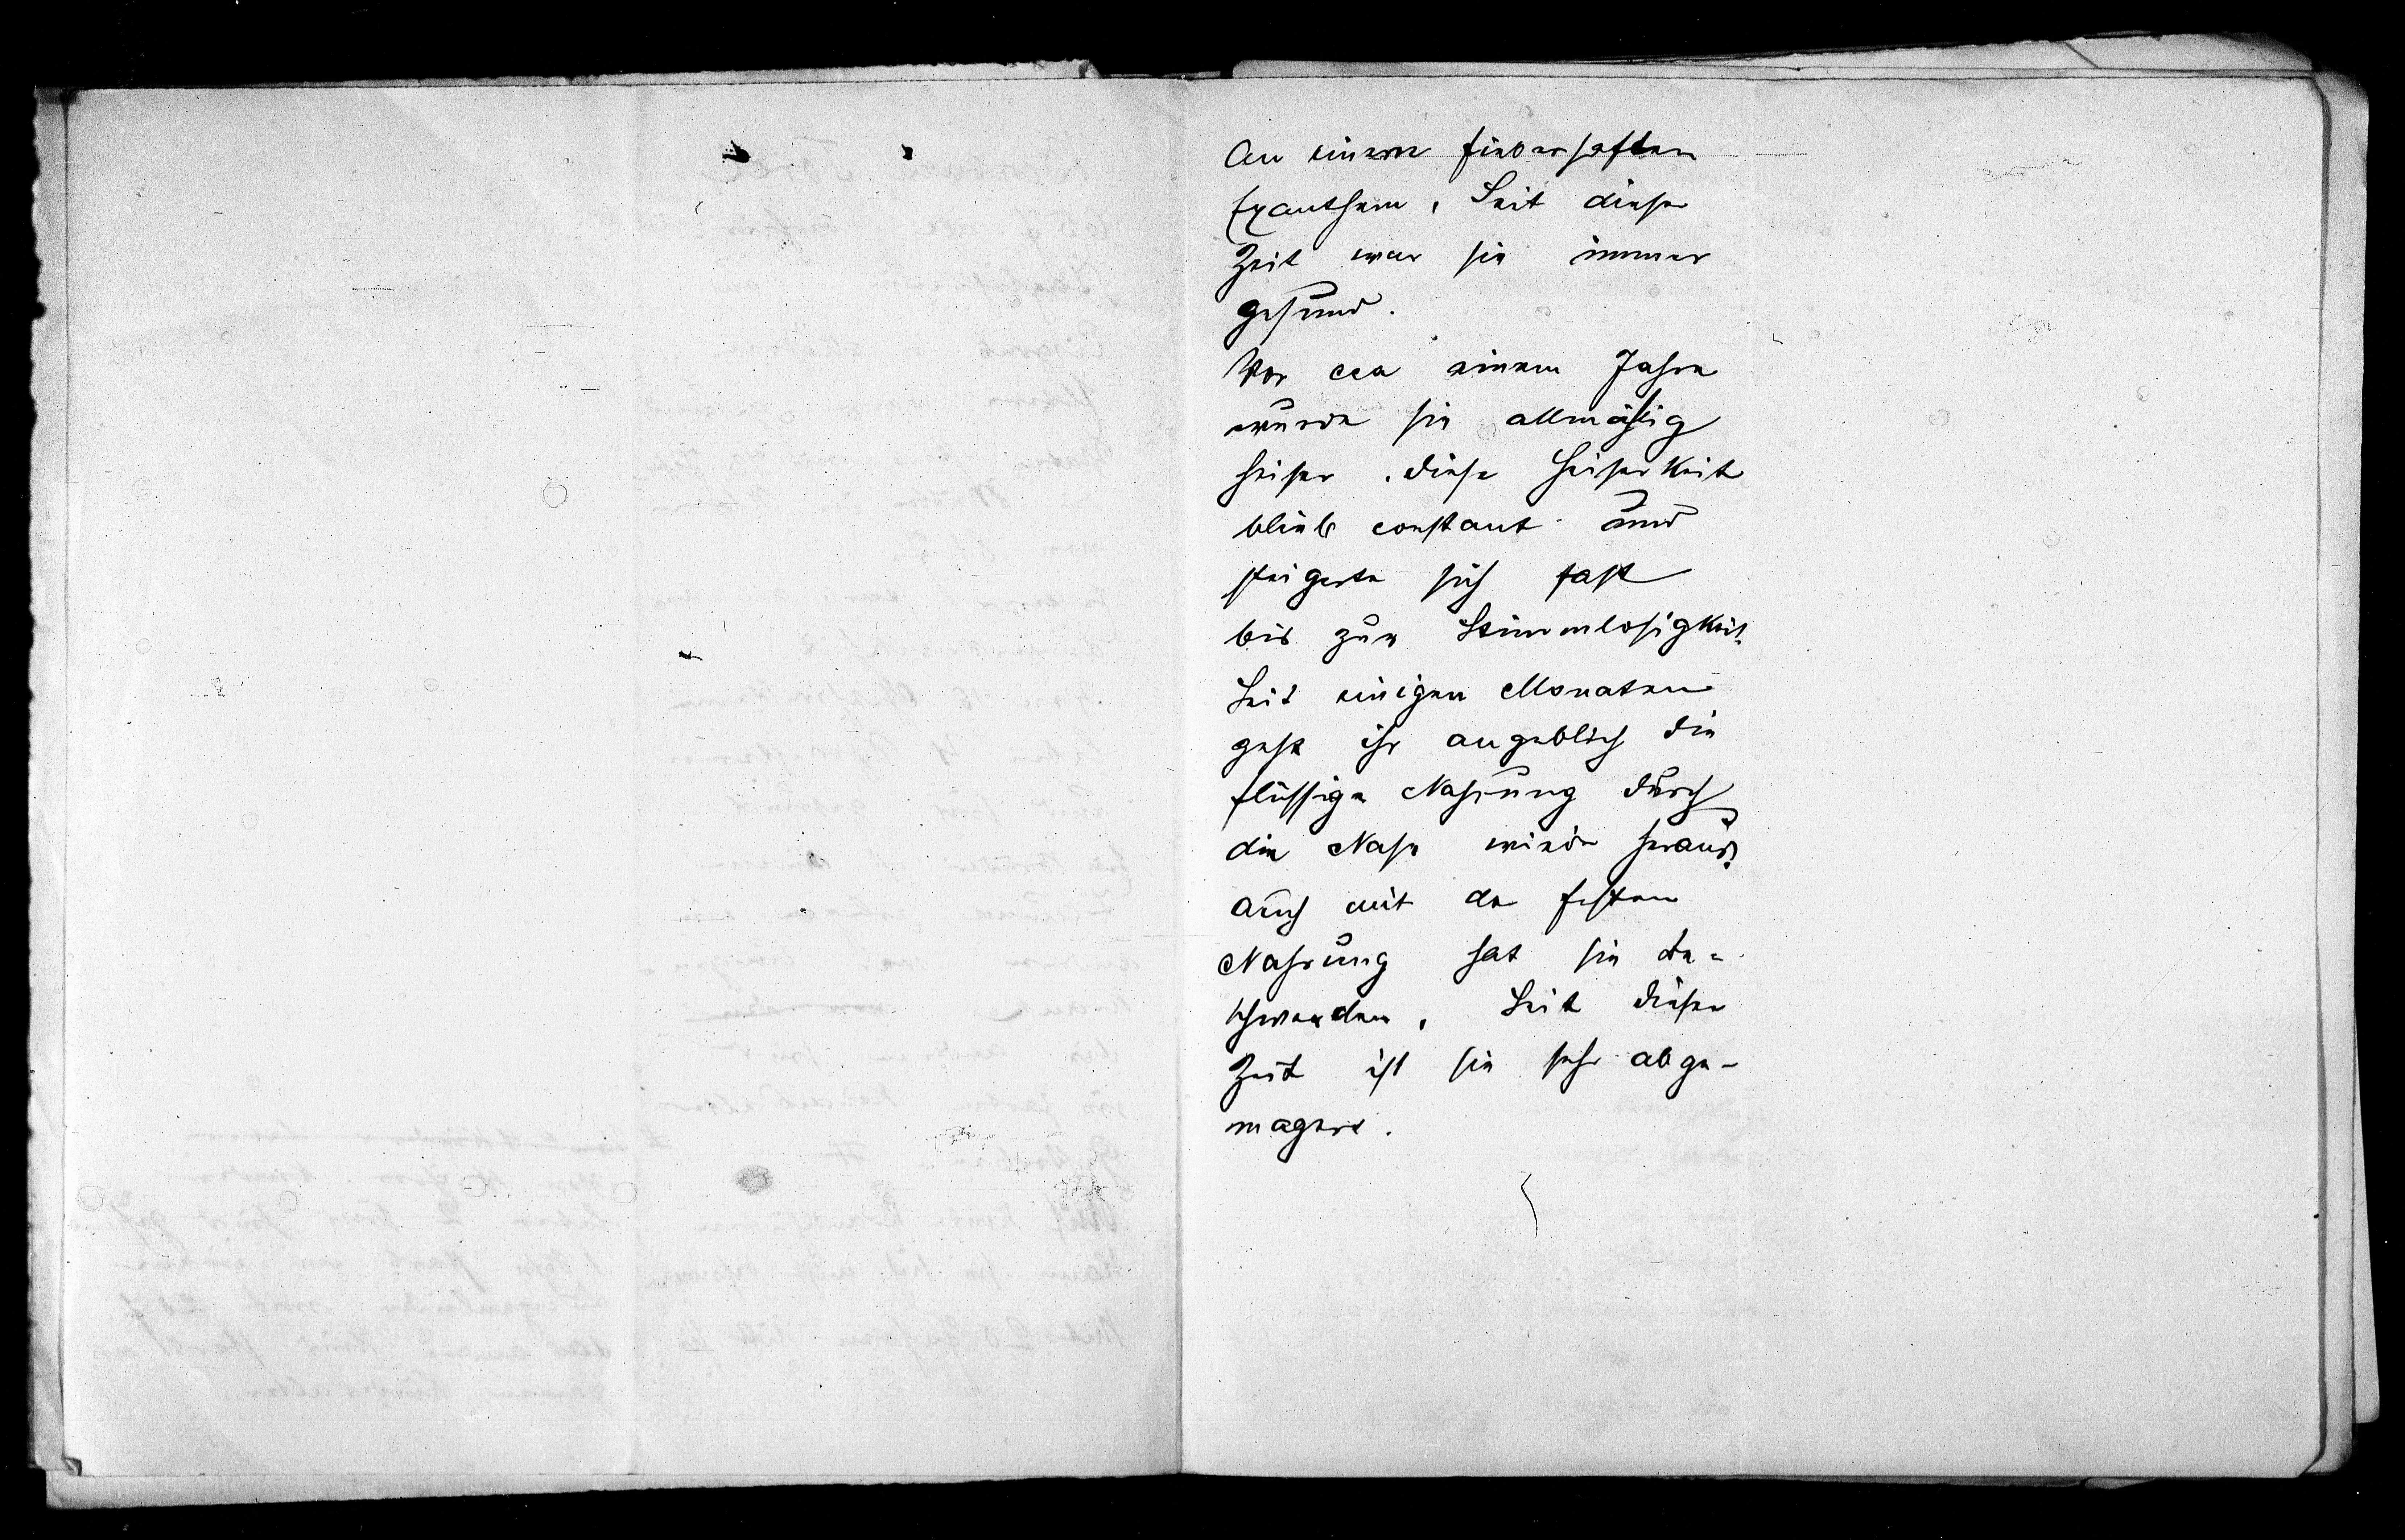 An einem fieberhaften
Exanthem, Seit dieser
Zeit war sie immer
gesund.
Vor cca einem Jahre
wurde sie allmählig
heiser. Diese Heiserkeit
blieb constant und
steigerte sich fast
bis zur Stimmlosigkeit.
Seit einigen Monaten
geht ihr angeblich die
flüssige Nahrung durch
die Nase wieder heraus.
Auch mit der festen
Nahrung hat sie Be-
schwerden, Seit dieser
Zeit ist sie sehr abge-
magert.